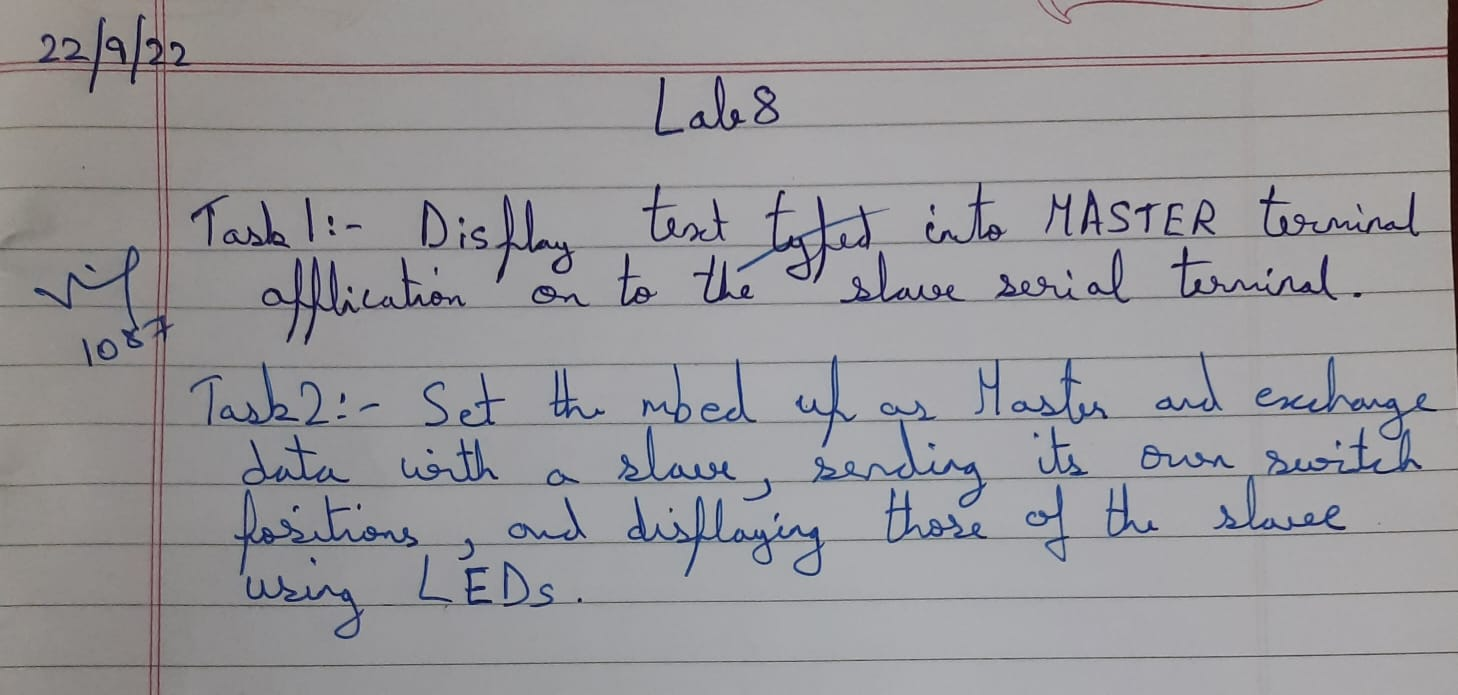 22/9/22
Lab 8
Task 1:- Display text typed into MASTER terminal
application on to the slave serial terminal.
1087
Task 2:- Set the mbed up as Master and exchange
data with a slave, sending its own switch
positions, and displaying those of the slave
using LEDs.